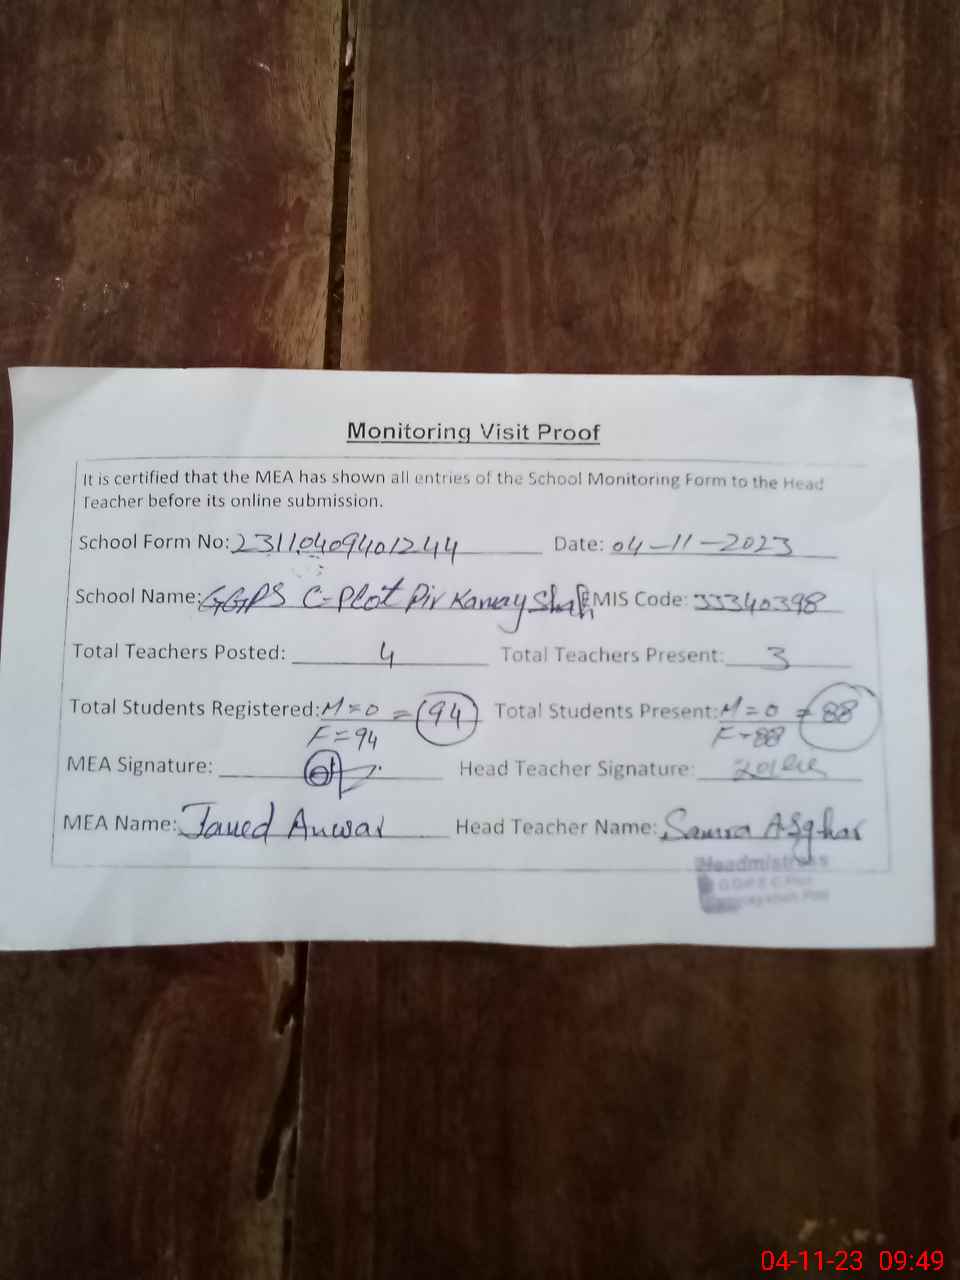 Monitoring Visit Proof
It is certified that the MEA has shown all entries of the School Monitoring Form to the Head
Teacher before its online submission.
School Form No: 23110409401244 Date: 04-11-2023
School Name: GGPS C-Plot Pir Kanay Shah EMIS Code: 33340398
Total Teachers Posted: 4 Total Teachers Present: 3
Total Students Registered: M=0 = 94 Total Students Present: M=0 = 88
F=94 F=88
MEA Signature: Head Teacher Signature:
MEA Name: Javed Anwar Head Teacher Name: Samra Asghar
Headmistress
04-11-23 09:49